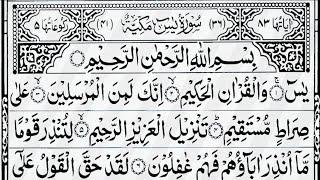 اٰیاتها ۸۳ (۳۶) سُوْرَةُ يٰسٓ مَكِّيَّةٌ (۴۱) رکوعاتها ۵
بِسْمِ اللّٰهِ الرَّحْمٰنِ الرَّحِيْمِ
يٰسٓ ۚ وَالْقُرْاٰنِ الْحَكِيْمِ ۙ اِنَّكَ لَمِنَ الْمُرْسَلِيْنَ ۙ عَلٰى
صِرَاطٍ مُّسْتَقِيْمٍ ؕ تَنْزِيْلَ الْعَزِيْزِ الرَّحِيْمِ ۙ لِتُنْذِرَ قَوْمًا
مَّاۤ اُنْذِرَ اٰبَآؤُهُمْ فَهُمْ غٰفِلُوْنَ لَقَدْ حَقَّ الْقَوْلُ عَلٰۤى